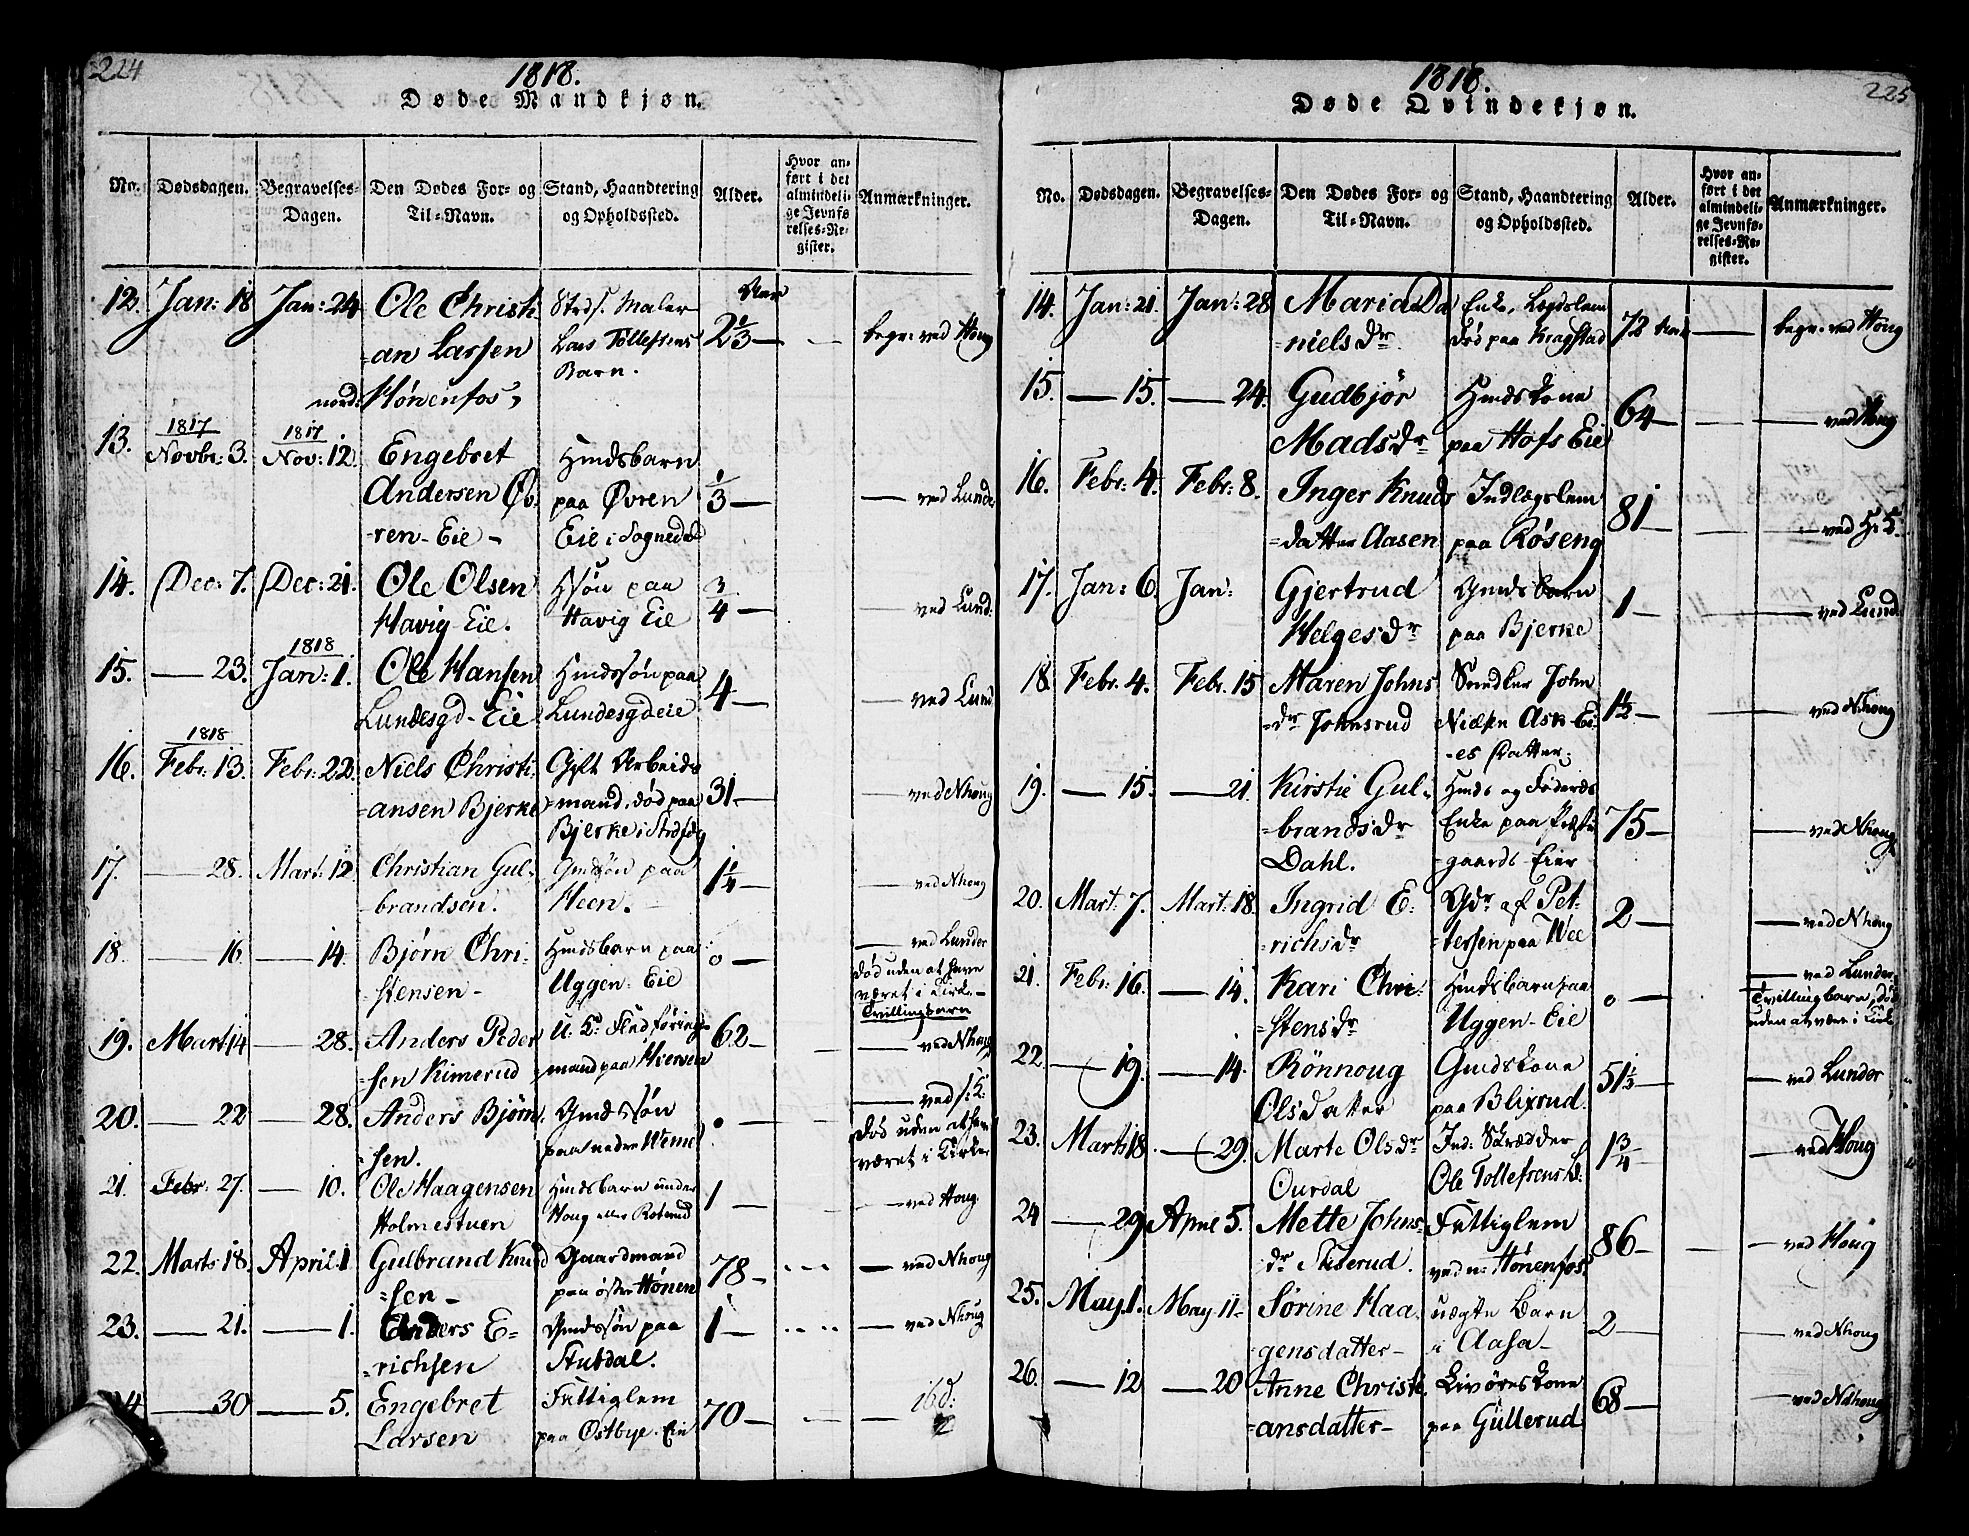 224
1818.
Døde Mandkjøn.
No.
Dødsdagen.
Begravelses-
Dagen.
Den Dødes For- og
Til-Navn.
Stand, Haandtering
og Opholdssted.
Alder.
Hvor an-
ført i det
almindeli-
ge Jevnfø
relses-Re-
gister.
Anmærkninger.
12. Jan: 18 Jan: 24 Ole Christi
=an Larsen
nord: Hønenfos,
Maler
Lars Tollefsens
Barn.
Aar
2 1/3 —
begr: ved Houg
13. 1817 Novbr: 3. 1817 Nov: 12. Engebret
Andersen Øv-
ren-Eie -
Hmdsbarn
paa Øvren
Eie i Sognedal
1/3 —
— ved Lunde
14. Dec: 7. Dec: 21. Ole Olsen
Havig-Eie.
søn paa
Havig Eie
3/4 —
— ved Lund:
15. — 23. 1818 Jan: 1. Ole Hansen
Lundesgd-Eie
Hmdssøn paa
Lundesgdeie
4 —
ved Lund
16. 1818 Febr: 13. Febr: 22. Niels Christi
=ansen Bjerke
Gift Arbeids
=mand, død paa
Bjerke i
31. —
— ved Nhoug
17. — 28. Mart: 12. Christian Gul-
brandsen.
Gmdssøn paa
Heen.
1 1/4 —
— ved Nhoug
18. — 16. — 14. Bjørn Chri-
stensen -
Hmdsbarn paa
Uggen-Eie
0 —
— ved Lunder
død uden at have
været i Kirke -
Tvillingbarn
19. Mart: 14 — 28. Anders Peder
sen Kimerud
=mand paa
62 —
— ved Nhoug
20. — 22 — 28. Anders Bjørn
sen.
Gmdssøn
paa nedre Weme
0 —
— ved
død uden at have
været i Kirke
21. Febr: 27. — 10. Ole Haagensen
Holmestuen
Hmdsbarn under
Houg eller
1 —
— ved Houg.
22. Marts 18. April 1 Gulbrand Knud
=sen -
Gaardmand
paa østre Hønen
78 —
— ved Nhoug
23. — 21. — 1. Anders E-
=richsen
Gmdssøn paa
Stubdal.
1 —
— ved Nhoug
24 — 30 — 5. Engebret
Larsen
Fattiglem
paa Østbye-Eie
70 —
— ibd:
225
1818.
Døde Qvindekjøn.
No.
Dødsdagen.
Begravelses-
Dagen.
Den Dødes For- og
Til-Navn.
Stand, Haandtering
og Opholdssted.
Alder.
Hvor an-
ført i det
almindeli-
ge Jevnfø-
relses-Re-
gister.
Anmærkninger.
14. Jan: 21. Jan: 28 Maria Da
=nielsdr
Enke, Lægdslem
død paa Kragstad
72 Aar —
begr: ved Houg
15. — 15. — 24. Gudbjør
Madsdr
Hmdskone
paa Hofs Eie
64 —
— ved Houg
16. Febr: 4. Febr: 8. Inger Knuds
=datter Aasen
Indlægslem
paa Røseng
81 —
— ved
17. Jan: 6. Jan: Gjertrud
Helgesdr
Gmdsbarn
paa Bjerke
1 —
— ved Lund:
18. Febr: 4. Febr: 15 Maren Johns
=dr Johnsrud
Snedker John
Nielsen Ask-Ei-
es Datter.
1 1/2 —
— ved Nhoug
19. — 15. — 21. Kirstie Gul-
=brandsdr
Dahl.
Hmds og Føderåds
Enke paa Præste
gaards Eier
75 —
— ved Nhoug
20. Mart: 7. Mart: 18. Ingrid E-
=richsdr
Gdr. af Pet-
tersen paa Wee
2 —
— ved Nhoug
21. Febr: 16. — 14. Kari Chri-
=stensdr
Hmdsbarn paa
Uggen-Eie
0 —
— ved Lunder
Tvillingbarn, død
uden at være i Kirke
22 — 19. — 14. Rönnoug
Olsdatter
Gmdskone
paa Blixrud.
51 1/3 —
— ved Lunder
23. Marts 18. — 29. Marte Olsdr
Ourdal
Ind: Skrædder
Ole Tollefsens D:
1 3/4 —
— ved Houg
24 — 29 April 5. Mette Johns-
dr
Fattiglem
ved n: Hønenfos
86 —
— ved Houg
25. May. 1. May. 11. Sørine Haa-
gensdatter -
uægte Barn
i Aasa -
2 —
— ved Nhoug
26. — 12 — 20 Anne Christi
=ansdatter -
Livøreskone
paa Gullerud
68 —
— ved Ndhoug